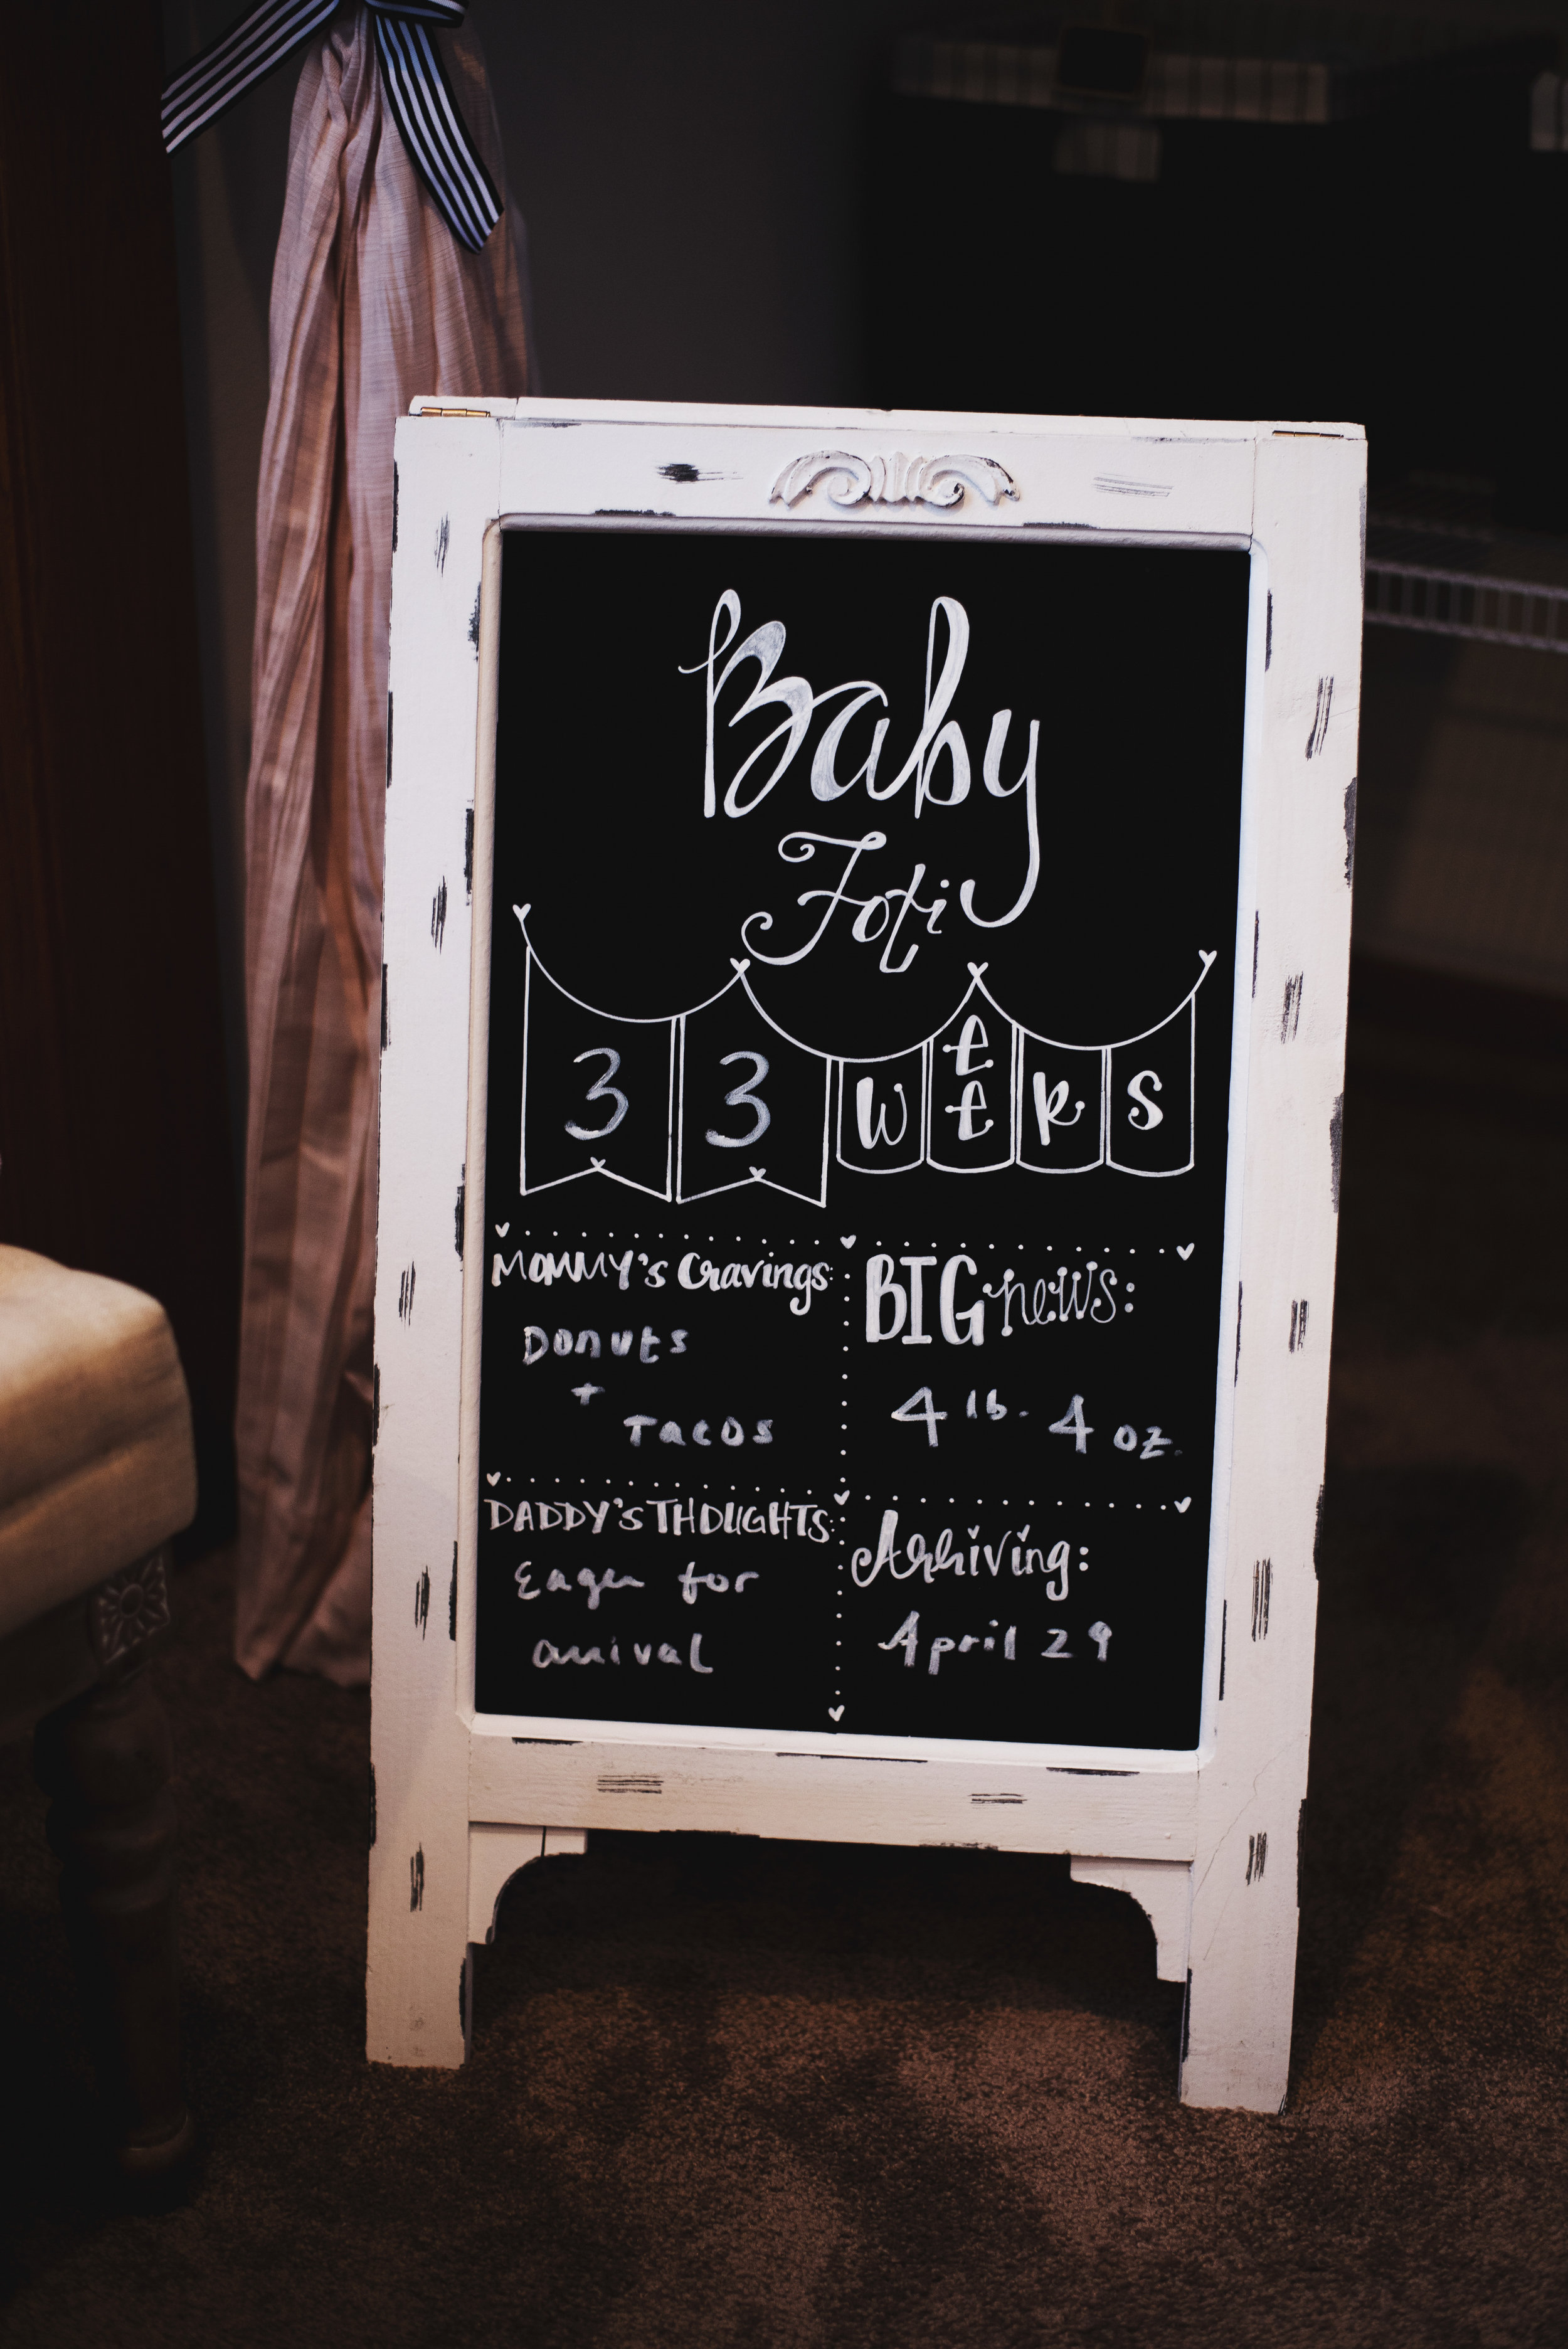 Baby
Foti
33 weeks
MOMMY's Cravings:
Donuts
+
Tacos
BIG news:
4 lb. 4 oz.
DADDY'S THOUGHTS:
Eager for
arrival
Arriving:
April 29